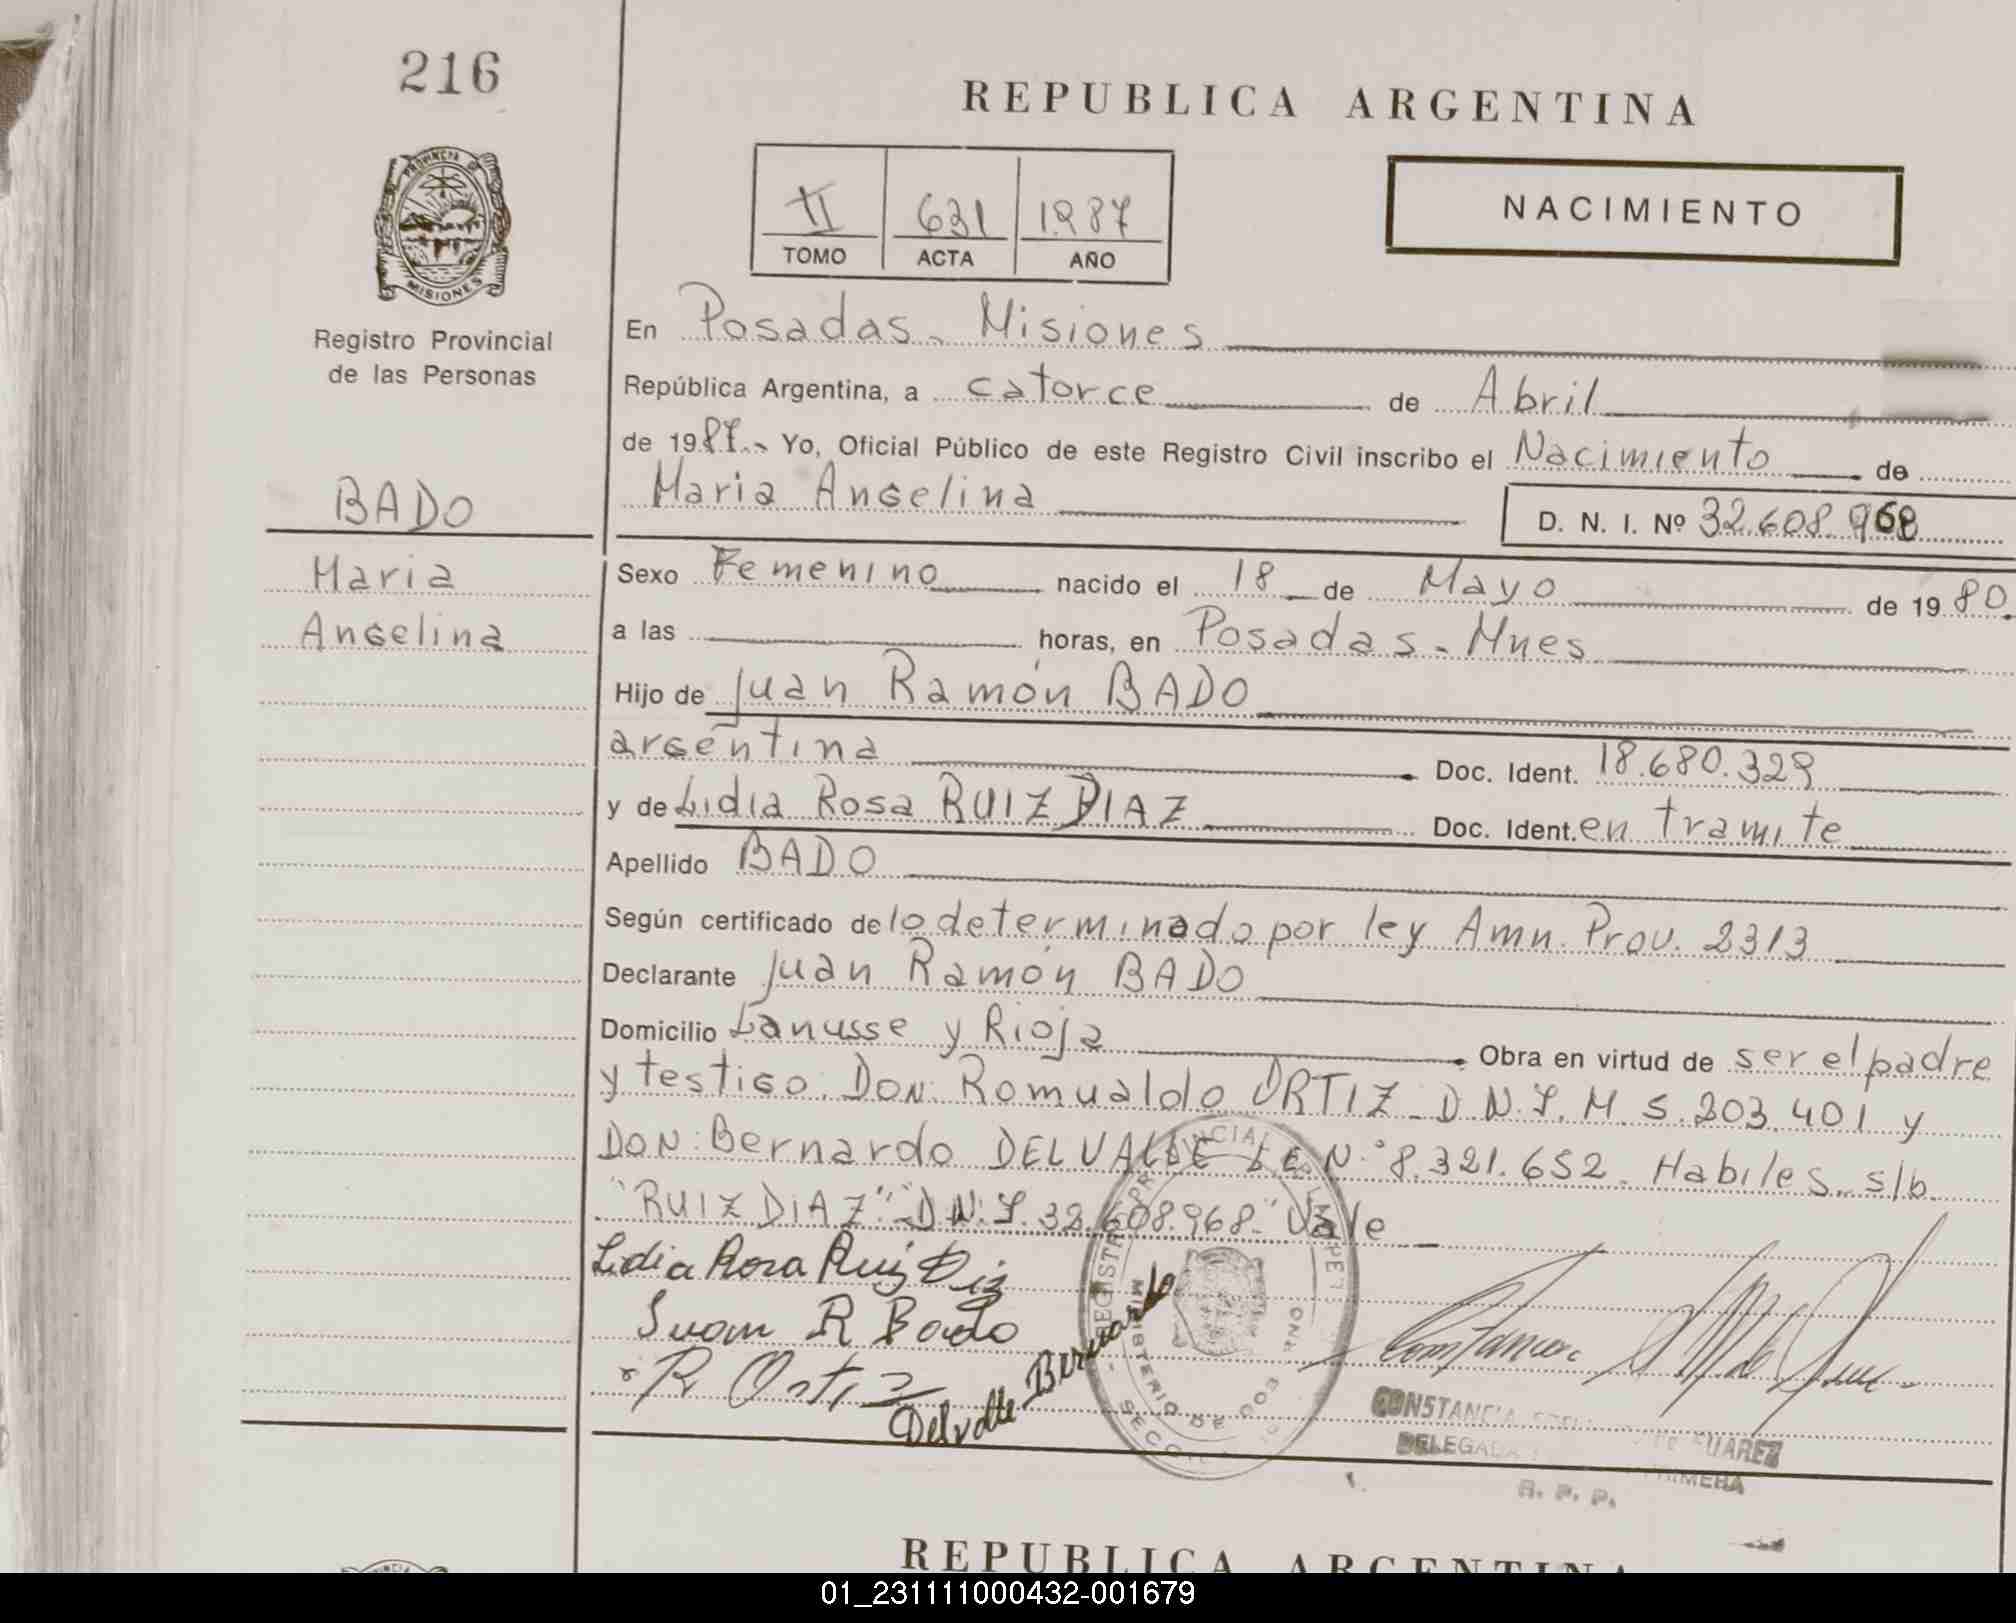 216
REPUBLICA ARGENTINA
PROVINCIA DE
MISIONES
Registro Provincial
de las Personas
II 631 1987
TOMO ACTA AÑO
NACIMIENTO
En Posadas - Misiones
República Argentina, a catorce de Abril
de 1987.- Yo, Oficial Público de este Registro Civil inscribo el Nacimiento de
Maria Angelina D. N. I. Nº 32.608.968
BADO
Maria
Angelina
Sexo Femenino nacido el 18 de Mayo de 1980.
a las horas, en Posadas - Mnes
Hijo de Juan Ramón BADO
argentina Doc. Ident. 18.680.329
y de Lidia Rosa RUIZ DIAZ Doc. Ident. en tramite
Apellido BADO
Según certificado de lo determinado por ley Amn. Prov. 2313
Declarante Juan Ramón BADO
Domicilio Lanusse y Rioja Obra en virtud de ser el padre
y testigo. Don: Romualdo ORTIZ - D.N.I. M. 5.203.401 y
DON: Bernardo DELVALLE L.E. N.º 8.321.652. Habiles. s/b.
"RUIZ DIAZ" - D.N.I. 32.608.968 - "Vale
Lidia Rosa Ruiz Diz
Juan R Bado
R Ortiz
Delvalle Bernardo
CONSTANCIA SUAREZ
DELEGADA PRIMERA
R. P. P.
REPUBLICA ARGENTINA
01_231111000432-001679